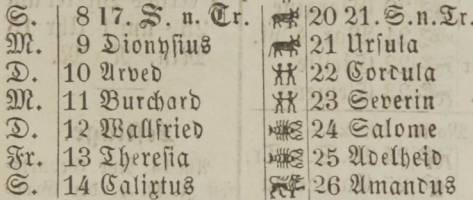 S. 8 17. S. n. Tr. 20 21. S. n. Tr.
M. 9 Dionysius 21 Ursula
D. 10 Arved 22 Cordula
M. 11 Burchard 23 Severin
D. 12 Wallfried 24 Salome
Fr. 13 Theresia 25 Adelheid
S. 14 Calixtus 26 Amandus